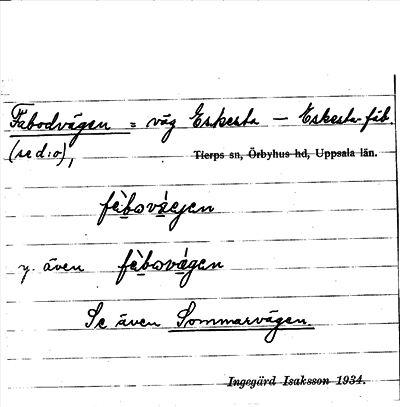 Fäbodvägen = väg Eskesta – Eskesta fäb.
(se d:o), Tierps sn, Örbyhus hd, Uppsala län.
fèbovä́gen
y. även fèbovä́gen
Se även Sommarvägen.
Ingegärd Isaksson 1934.